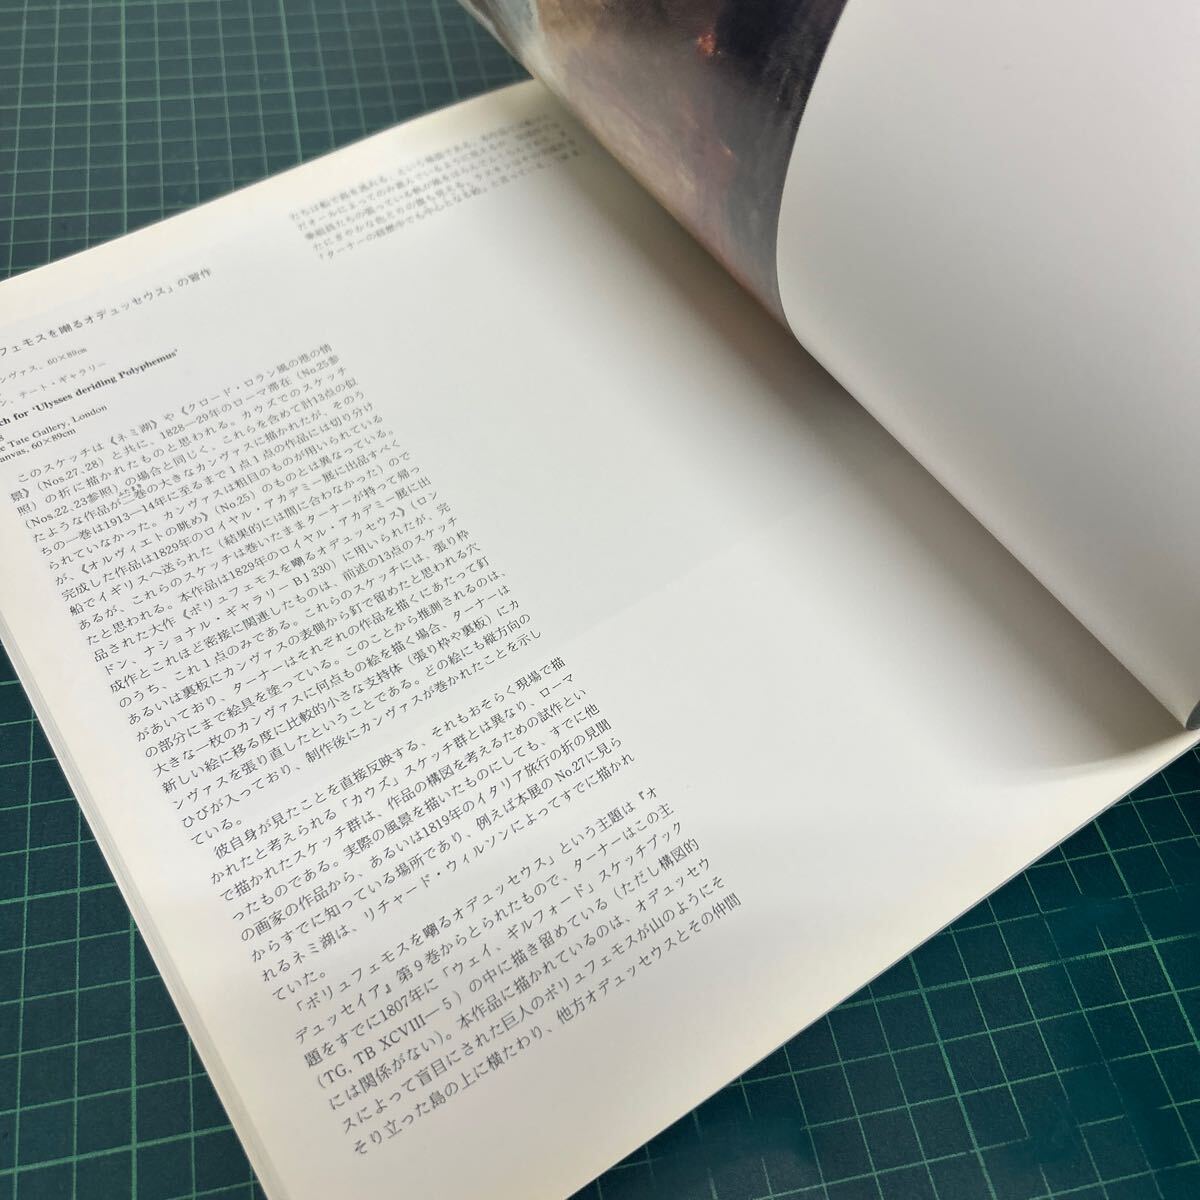 フェモスを嘲るオデュッセウス」の習作
ンヴァス、60×89cm
ン、テート・ギャラリー
ch for 'Ulysses deriding Polyphemus'
8
e Tate Gallery, London
anvas, 60×89cm
このスケッチは《ネミ湖》や《クロード・ロラン風の港の情
景》(Nos.27、28) と共に、1828—29年のローマ滞在 (No.25参
照) の折に描かれたものと思われる。カウズでのスケッチ
(Nos.22, 23参照) の場合と同じく、これらを含めて計13点の似
たような作品が一巻の大きなカンヴァスに描かれたが、そのう
ちの一巻は1913—14年に至るまで1点1点の作品には切り分け
られていなかった。カンヴァスは粗目のものが用いられている
が、《オルヴィエトの眺め》(No.25) のものとは異なっている。
完成した作品は1829年のロイヤル・アカデミー展に出品すべく
船でイギリスへ送られた (結果的には間に合わなかった) ので
あるが、これらのスケッチは巻いたままターナーが持って帰っ
たと思われる。本作品は1829年のロイヤル・アカデミー展に出
品された大作《ポリュフェモスを嘲るオデュッセウス》(ロン
ドン、ナショナル・ギャラリー BJ 330) に用いられたが、完
成作とこれほど密接に関連したものは、前述の13点のスケッチ
のうち、これ1点のみである。これらのスケッチには、張り枠
あるいは裏板にカンヴァスの表側から釘で留めたと思われる穴
があいており、ターナーはそれぞれの作品を描くにあたって釘
の部分にまで絵具を塗っている。このことから推測されるのは、
大きな一枚のカンヴァスに何点もの絵を描く場合、ターナーは
新しい絵に移る度に比較的小さな支持体 (張り枠や裏板) にカ
ンヴァスを張り直したということである。どの絵にも縦方向の
ひびが入っており、制作後にカンヴァスが巻かれたことを示し
ている。
彼自身が見たことを直接反映する、それもおそらく現場で描
かれたと考えられる「カウズ」スケッチ群とは異なり、ローマ
で描かれたスケッチ群は、作品の構図を考えるための試作とい
ったものである。実際の風景を描いたものにしても、すでに他
の画家の作品から、あるいは1819年のイタリア旅行の折の見聞
からすでに知っている場所であり、例えば本展の No.27に見ら
れるネミ湖は、リチャード・ウィルソンによってすでに描かれ
ていた。
「ポリュフェモスを嘲るオデュッセウス」という主題は『オ
デュッセイア』第9巻からとられたもので、ターナーはこの主
題をすでに1807年に「ウェイ、ギルフォード」スケッチブック
(TG, TB XCVIII—5) の中に描き留めている (ただし構図的
には関係がない)。本作品に描かれているのは、オデュッセウ
スによって盲目にされた巨人のポリュフェモスが山のようにそ
そり立った島の上に横たわり、他方オデュッセウスとその仲間
たちは船で島を逃れる、という場面である。
「ターナーの経歴中でも中心となる絵」と言っている。